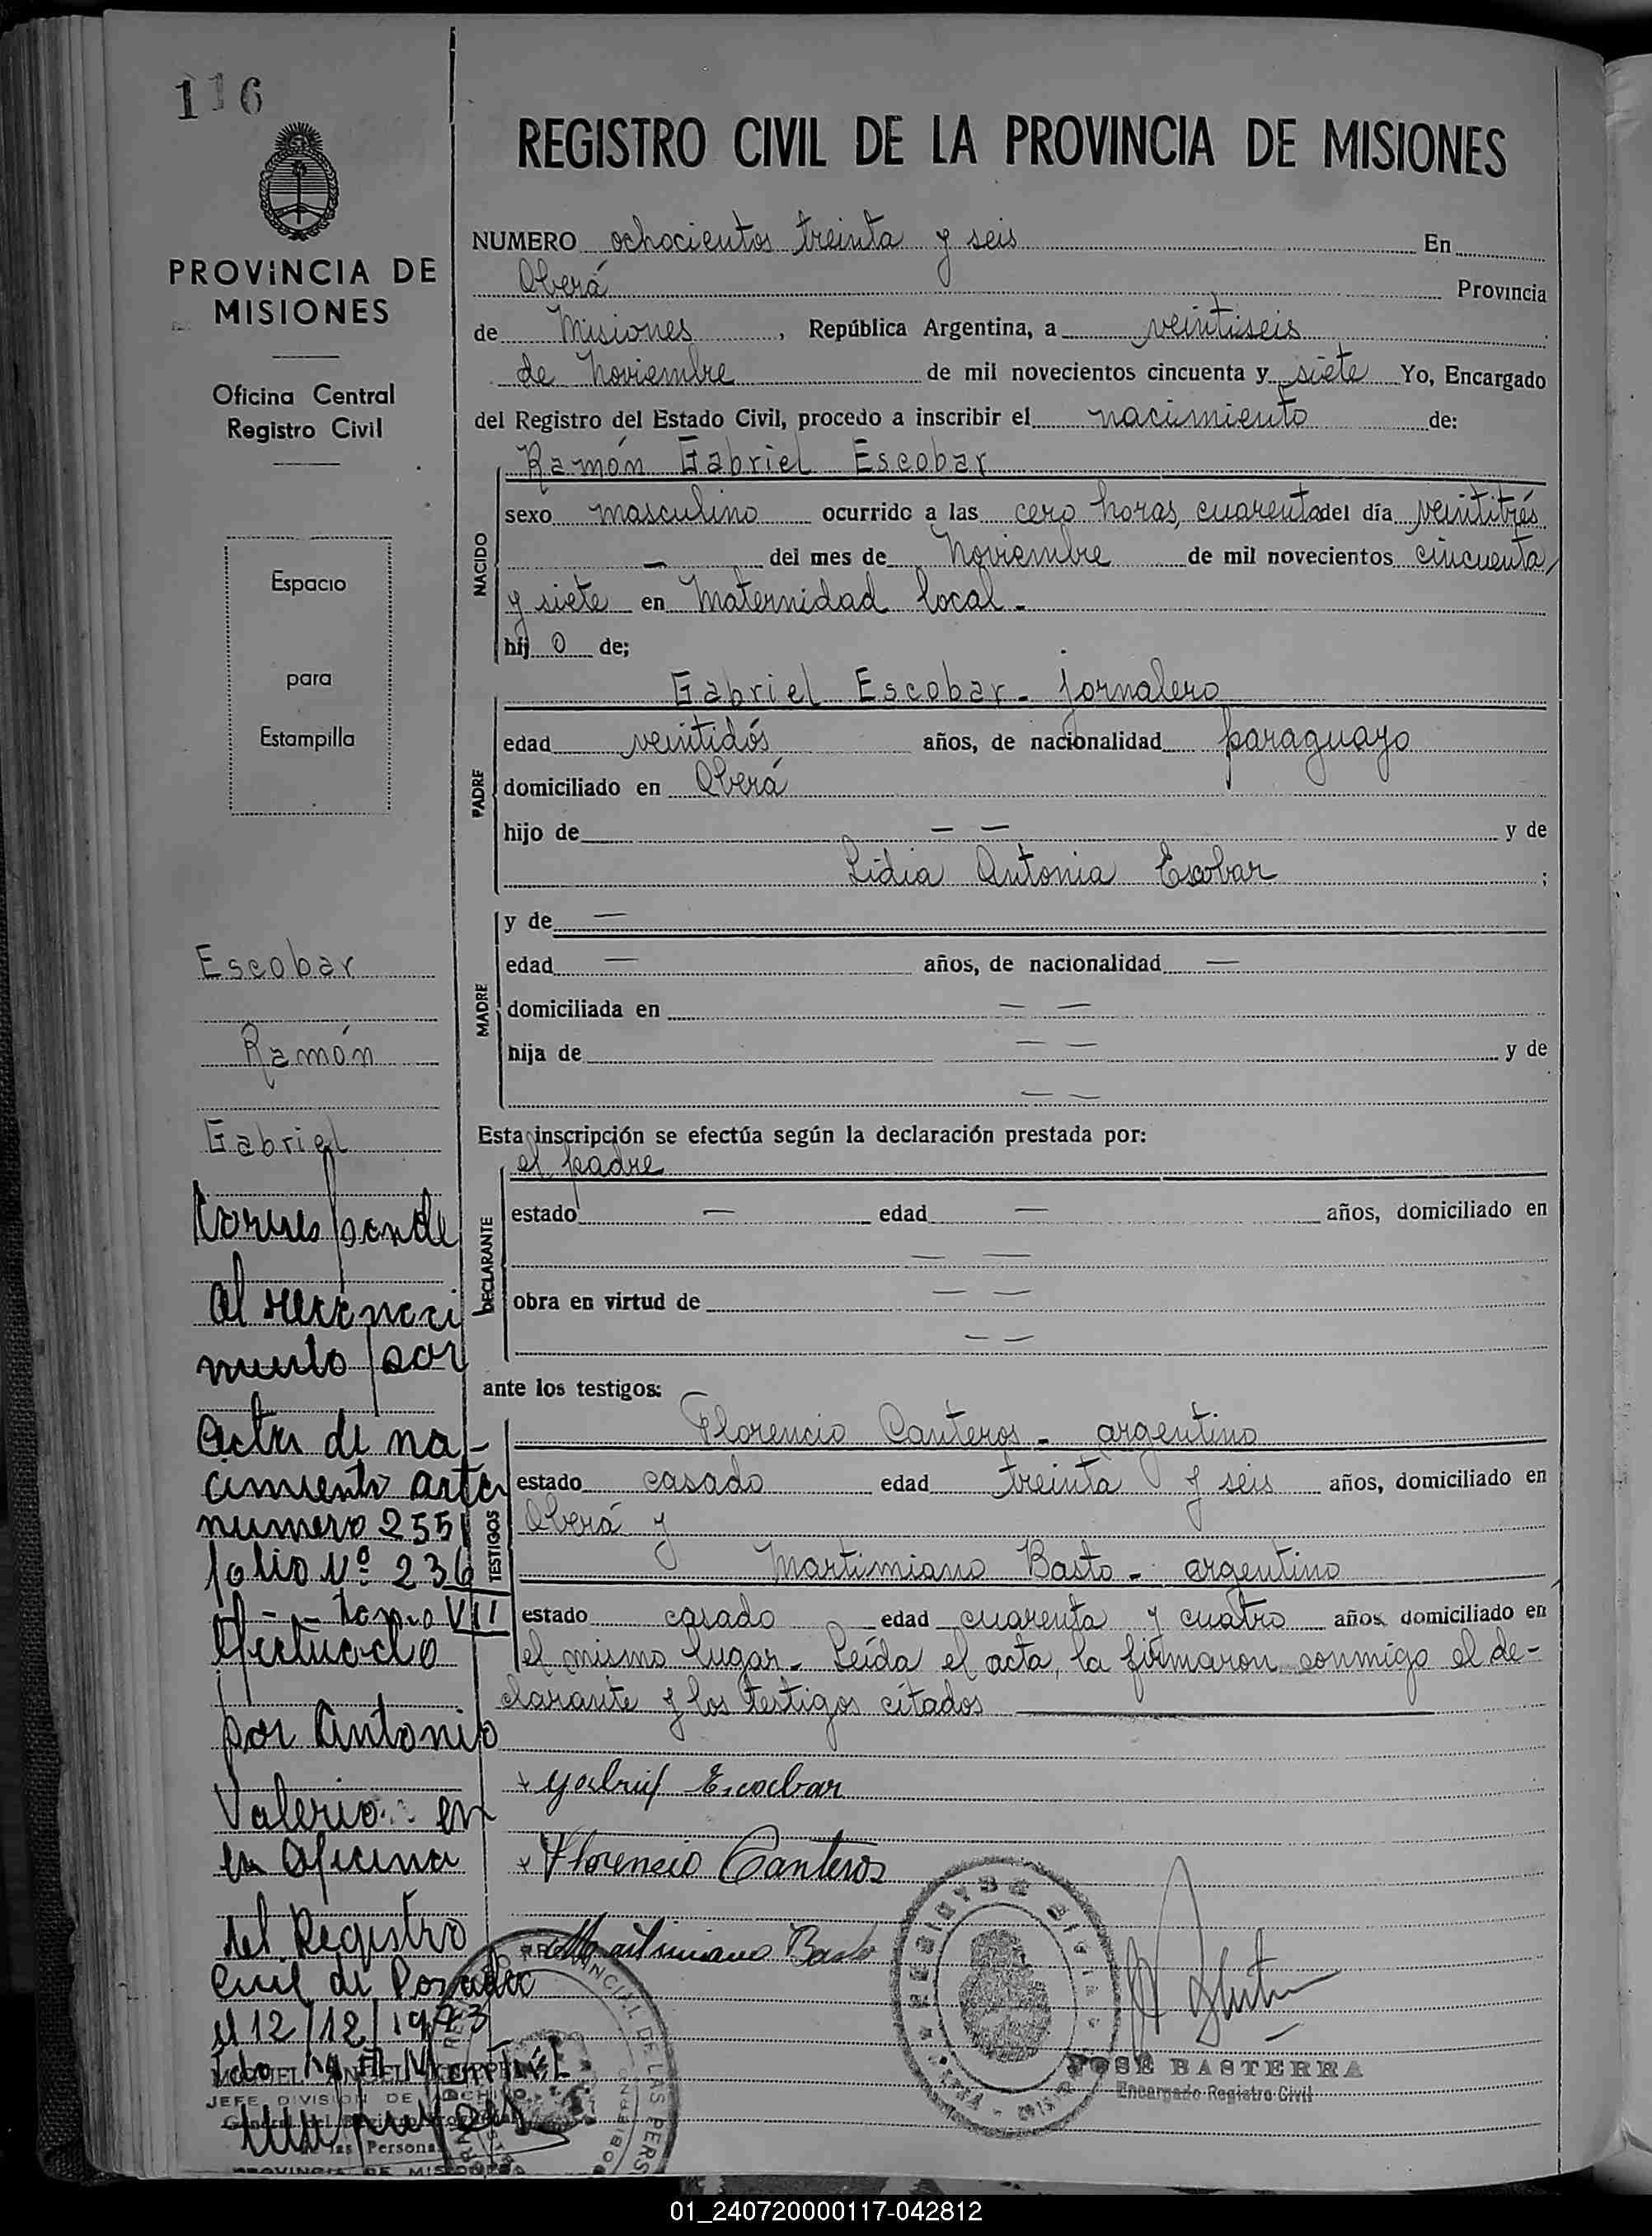 116
REGISTRO CIVIL DE LA PROVINCIA DE MISIONES
PROVINCIA DE
MISIONES
Oficina Central
Registro Civil
Espacio
para
Estampilla
NUMERO ochocientos treinta y seis En
Oberá Provincia
de Misiones, República Argentina, a veintiseis
de Noviembre de mil novecientos cincuenta y siete Yo, Encargado
del Registro del Estado Civil, procedo a inscribir el nacimiento de:
NACIDO
Ramón Gabriel Escobar
sexo masculino ocurrido a las cero horas, cuarenta del día veintitrés
— del mes de Noviembre de mil novecientos cincuenta
y siete en Maternidad local.-
hij o de;
PADRE
Gabriel Escobar - jornalero
edad veintidós años, de nacionalidad paraguayo
domiciliado en Oberá
hijo de — — y de
Lidia Antonia Escobar ;
MADRE
y de —
edad — años, de nacionalidad —
domiciliada en — —
hija de — — y de
— —
Esta inscripción se efectúa según la declaración prestada por:
DECLARANTE
el padre
estado — edad — años, domiciliado en
— —
obra en virtud de — —
— —
ante los testigos:
TESTIGOS
Florencio Canteros - argentino
estado casado edad treinta y seis años, domiciliado en
Oberá y
Martimiano Basto - argentino
estado casado edad cuarenta y cuatro años domiciliado en
el mismo lugar - Leída el acta, la firmaron conmigo el de-
clarante y los testigos citados
Gabriel Escobar
Florencio Canteros
Martimiano Basto
JOSÉ BASTERRA
Encargado Registro Civil
Escobar
Ramón
Gabriel
Corresponde
al reconoci
miento por
acta de na-
cimiento acta
numero 2551
folio Nº 236
tomo VII
efectuado
por Antonio
Valerio en
en Oficina
del Registro
Civil de Posadas
el 12/12/1973
JEFE DIVISION DE ARCHIVO
PROVINCIA DE MISIONES
01_240720000117-042812